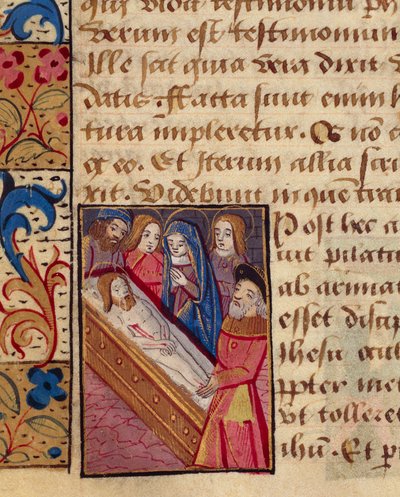 qui vidit testimonium ph
Verum est testimonium
Ille scit quia vera dixit v
datis. ffacta sunt enim h
tura impleretur. Os nō c
ex eo. Et iterum allia scri
xit. Videbunt in quem tran
Post hec a
uit pilatu
ab armat
esset discip
Ihesu ocul
ppter met
Vt tolleret
ihū. Et p